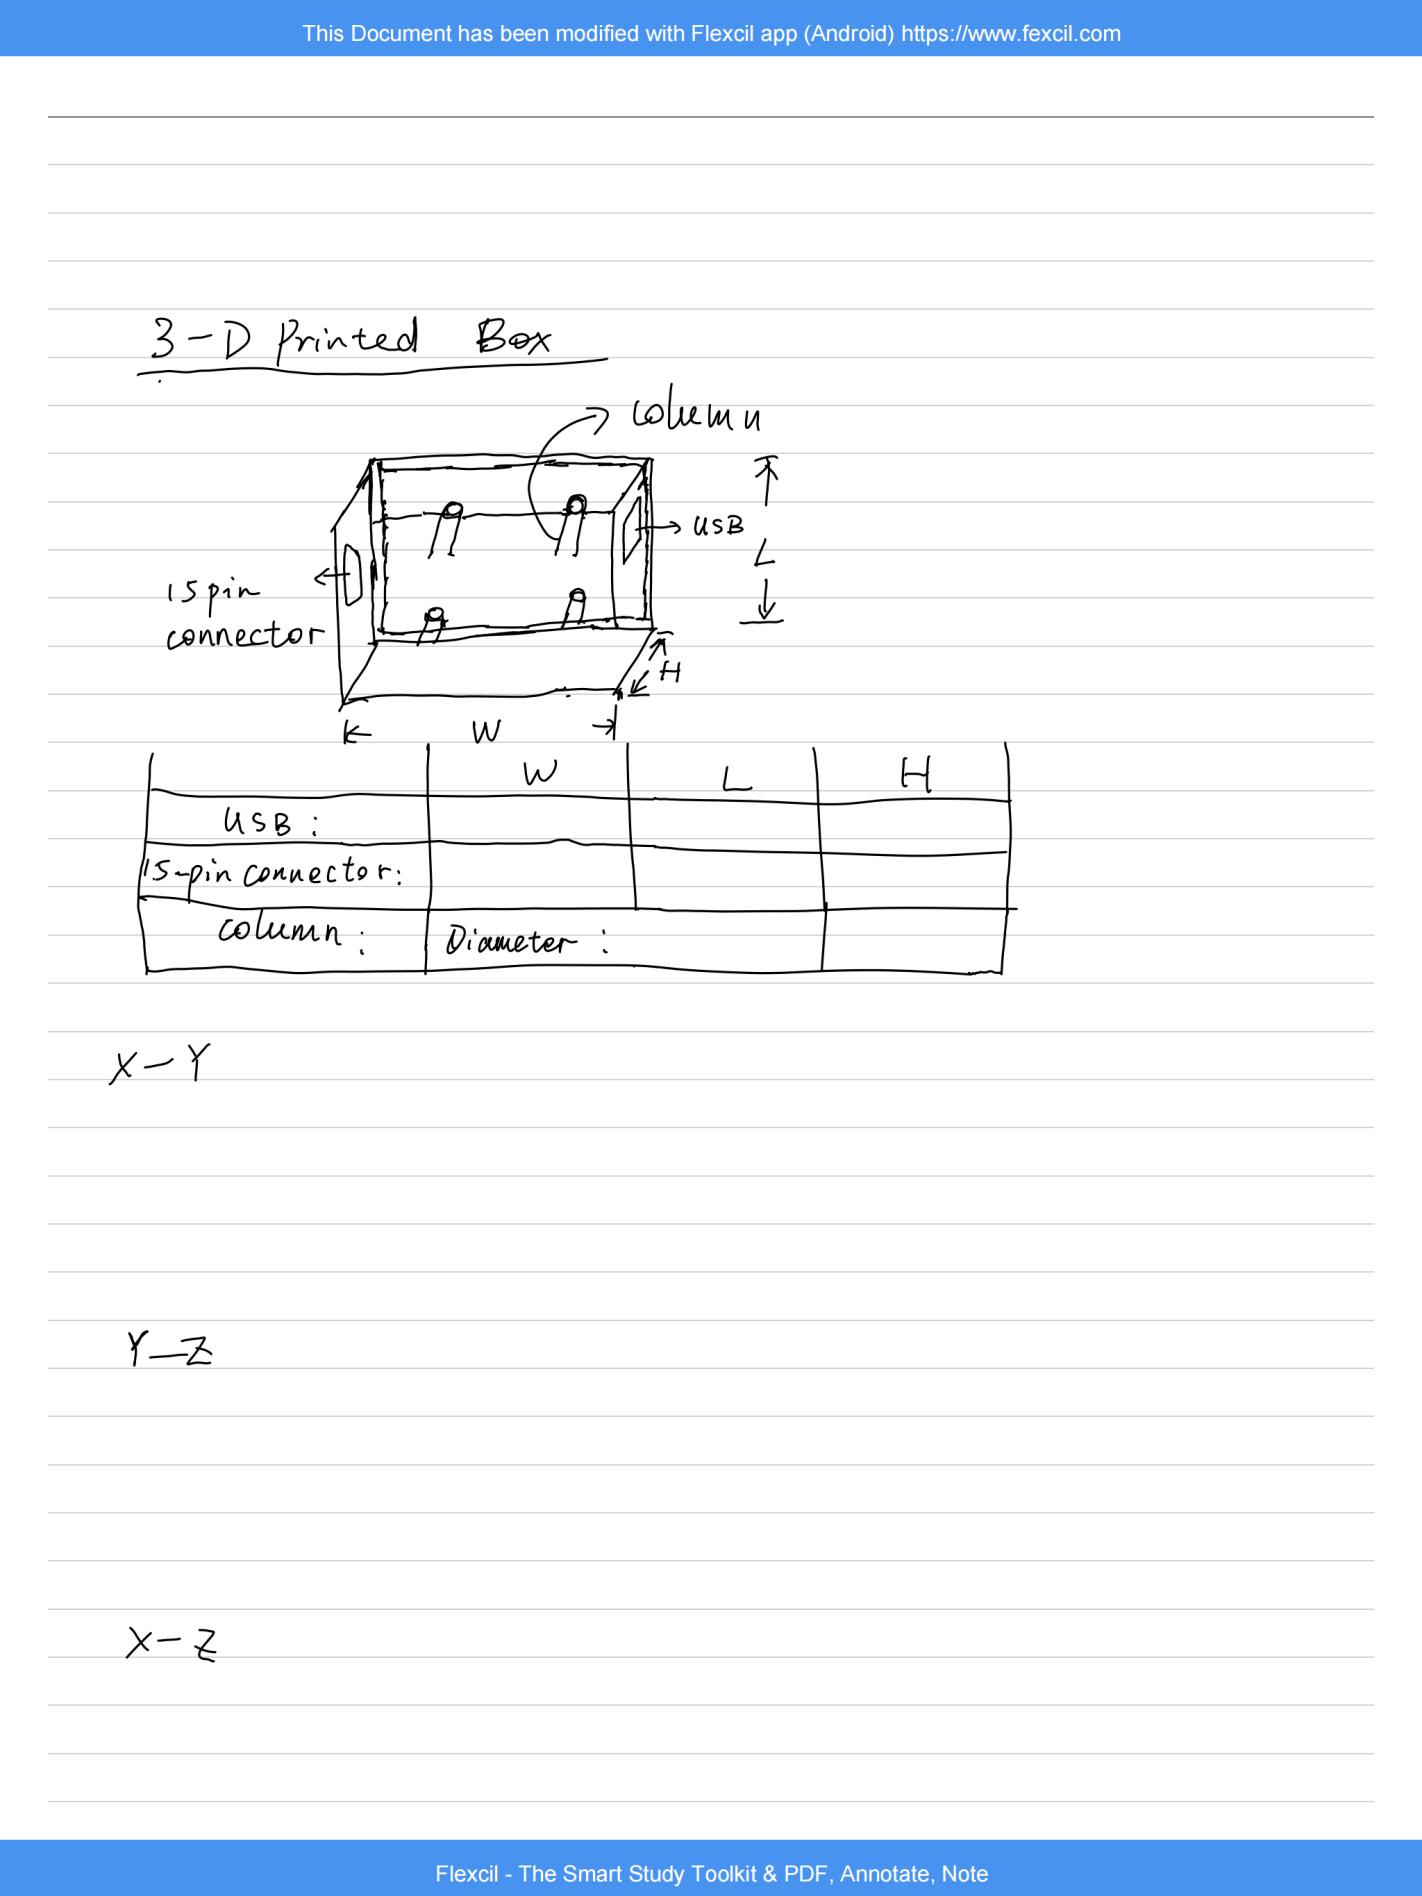 This Document has been modified with Flexcil app (Android) https://www.fexcil.com
3-D Printed Box
column
USB
L
15 pin
connector
H
W
W L H
USB :
15-pin connector:
column : Diameter :
X-Y
Y-Z
X-Z
Flexcil - The Smart Study Toolkit & PDF, Annotate, Note